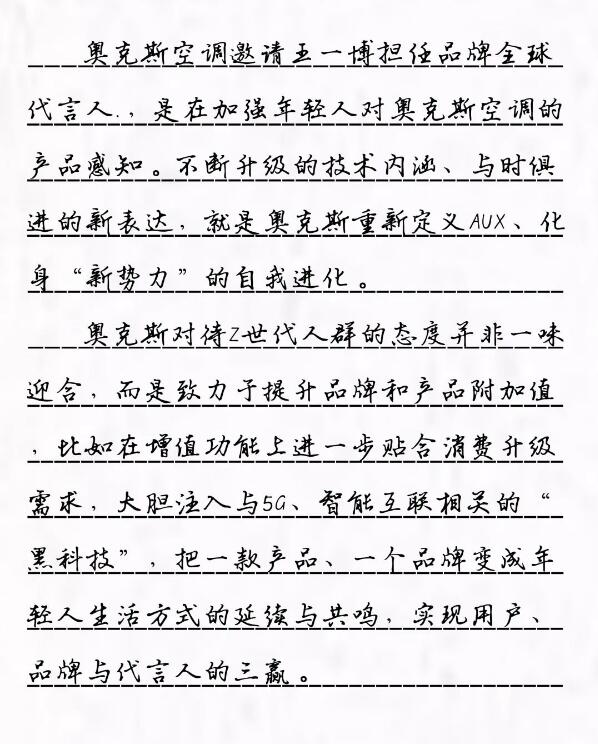 奥克斯空调邀请王一博担任品牌全球
代言人.，是在加强年轻人对奥克斯空调的
产品感知。不断升级的技术内涵、与时俱
进的新表达，就是奥克斯重新定义AUX、化
身“新势力”的自我进化。
奥克斯对待Z世代人群的态度并非一味
迎合，而是致力于提升品牌和产品附加值
，比如在增值功能上进一步贴合消费升级
需求，大胆注入与5G、智能互联相关的“
黑科技”，把一款产品、一个品牌变成年
轻人生活方式的延续与共鸣，实现用户、
品牌与代言人的三赢。